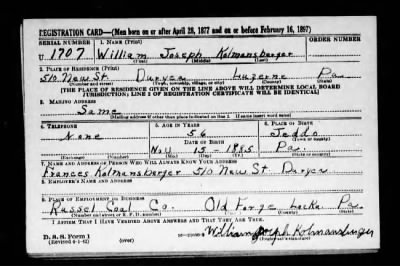 REGISTRATION CARD—(Men born on or after April 28, 1877 and on or before February 16, 1897)
SERIAL NUMBER 1. NAME (Print) ORDER NUMBER
U 1707 William Joseph Kolmansberger
(First) (Middle) (Last)
2. PLACE OF RESIDENCE (Print)
510 New St. Duryea Luzerne Pa
(Number and street) (Town, township, village, or city) (County) (State)
[THE PLACE OF RESIDENCE GIVEN ON THE LINE ABOVE WILL DETERMINE LOCAL BOARD
JURISDICTION; LINE 2 OF REGISTRATION CERTIFICATE WILL BE IDENTICAL]
3. MAILING ADDRESS
Same
[Mailing address if other than place indicated on line 2. If same insert word same]
4. TELEPHONE 5. AGE IN YEARS 6. PLACE OF BIRTH
None 56 Jeddo
DATE OF BIRTH (Town or county)
Nov 15 - 1885 Pa.
(Exchange) (Number) (Mo.) (Day) (Yr.) (State or country)
7. NAME AND ADDRESS OF PERSON WHO WILL ALWAYS KNOW YOUR ADDRESS
Frances Kolmansberger 510 New St Duryea
8. EMPLOYER'S NAME AND ADDRESS
9. PLACE OF EMPLOYMENT OR BUSINESS
Russel Coal Co. Old Forge Lacka Pa
(Number and street or R. F. D. number) (Town) (County) (State)
I AFFIRM THAT I HAVE VERIFIED ABOVE ANSWERS AND THAT THEY ARE TRUE.
D. S. S. Form 1
(Revised 4-1-42) (over) William Joseph Kolmansberger
(Registrant's signature)